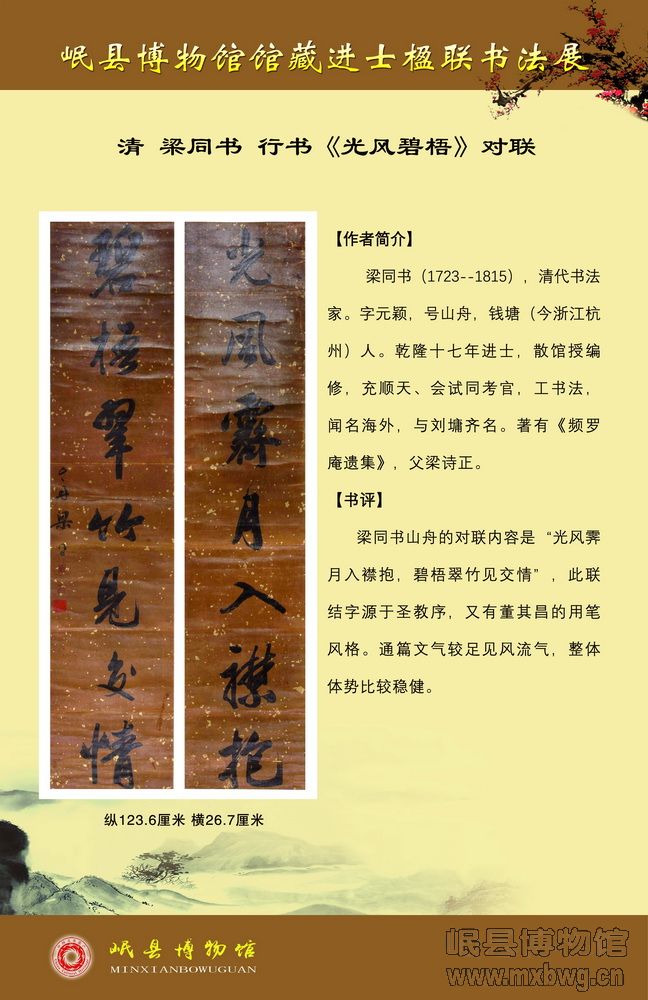 岷县博物馆馆藏进士楹联书法展
清 梁同书 行书《光风碧梧》对联
光风霽月入襟抱
碧梧翠竹见交情
山舟梁同书
【作者简介】
梁同书（1723--1815），清代书法
家。字元颖，号山舟，钱塘（今浙江杭
州）人。乾隆十七年进士，散馆授编
修，充顺天、会试同考官，工书法，
闻名海外，与刘墉齐名。著有《频罗
庵遗集》，父梁诗正。
【书评】
梁同书山舟的对联内容是“光风霁
月入襟抱，碧梧翠竹见交情”，此联
结字源于圣教序，又有董其昌的用笔
风格。通篇文气较足见风流气，整体
体势比较稳健。
纵123.6厘米 横26.7厘米
岷县博物馆
MINXIANBOWUGUAN
岷县博物馆
www.mxbwg.cn